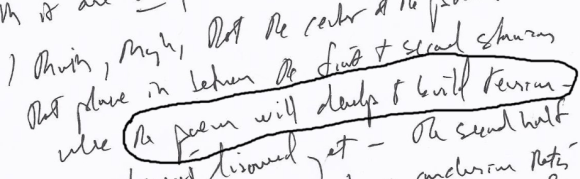 it are
I think, though, that the center of the
that place in between the first & second stanzas
where the poem will develop & build tension
discovered yet - the second half
conclusion that's